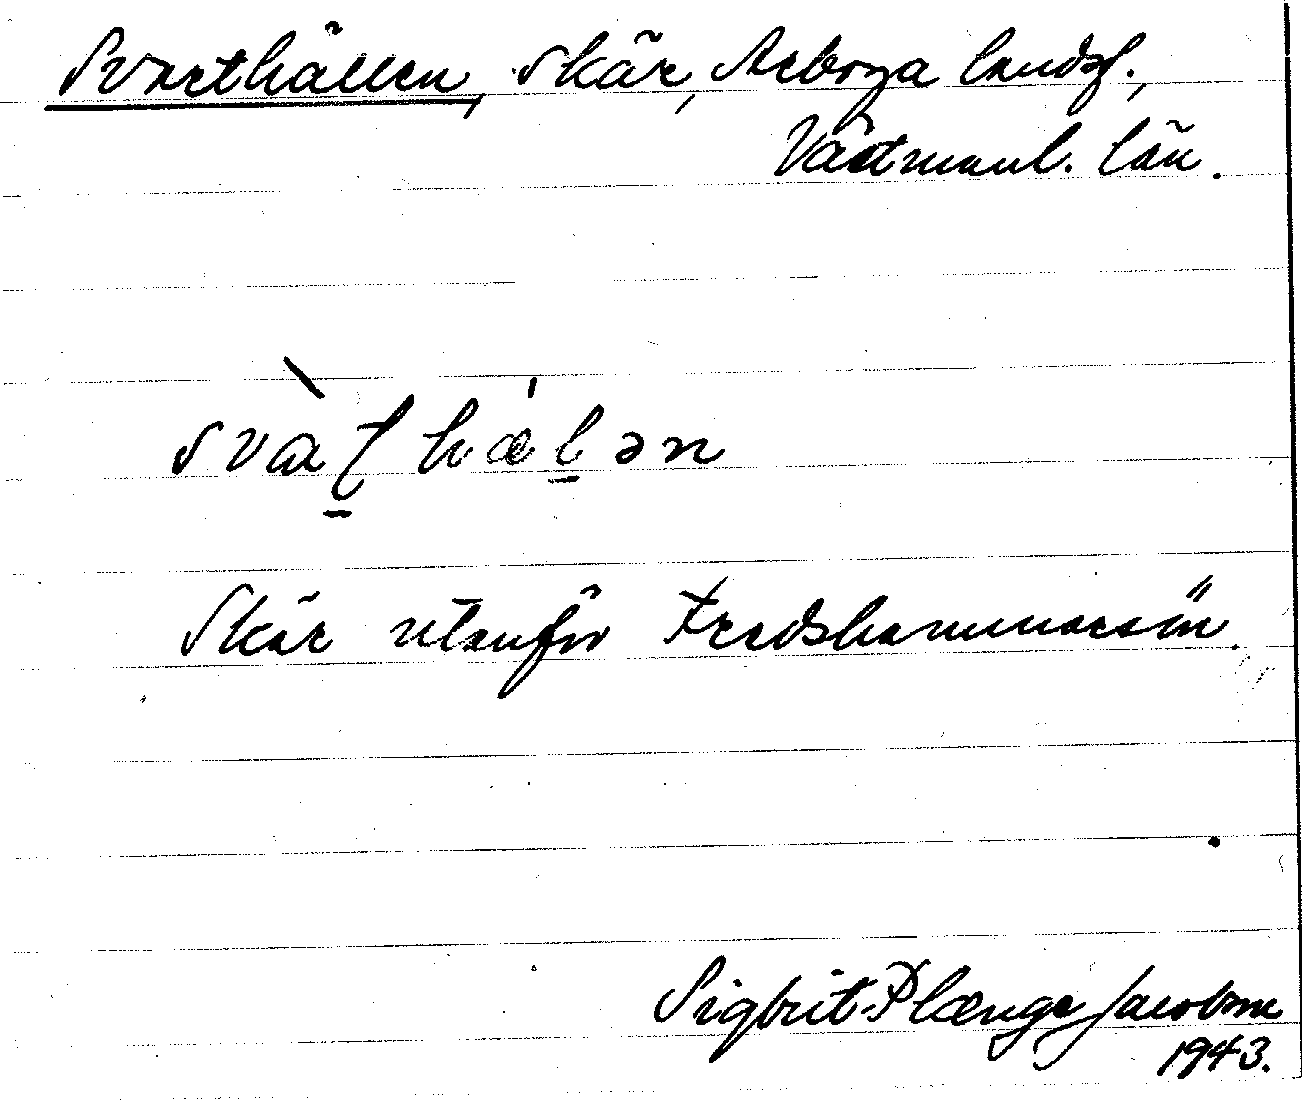 Svarthällen, skär, Arboga landsf.,
Västmanl. län.
svàʈhǽḷən
Skär utanför Fredshammarsön.
Sigbrit Plænge Jacobson
1943.